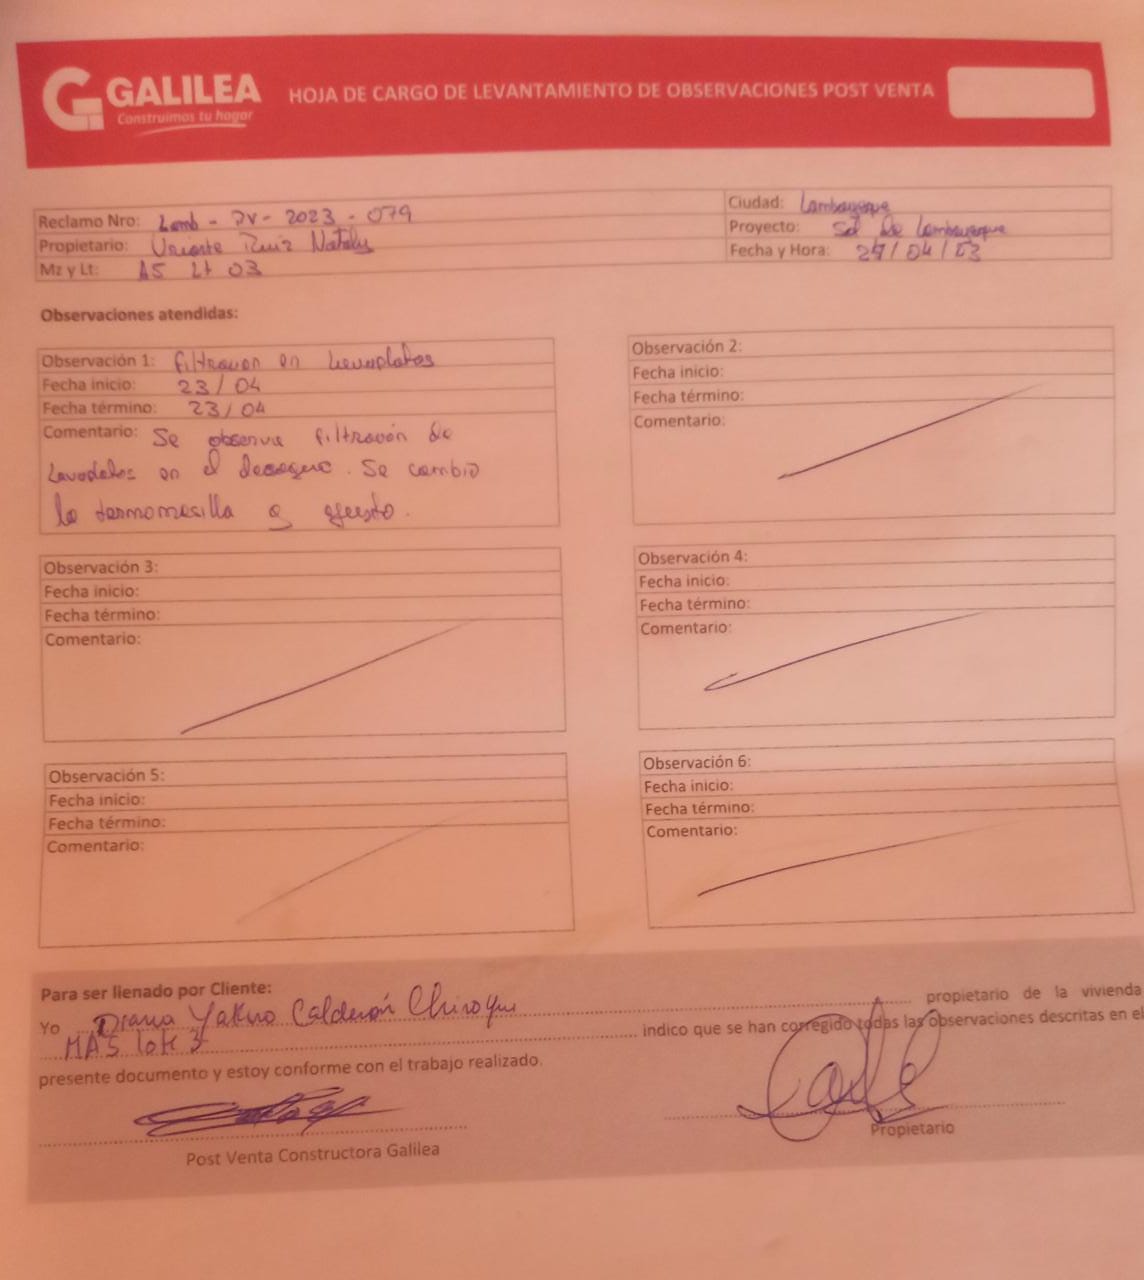 GALILEA
Construimos tu hogar
HOJA DE CARGO DE LEVANTAMIENTO DE OBSERVACIONES POST VENTA
Reclamo Nro: Lamb - PV - 2023 - 079
Propietario: Uriarte Ruiz Nataly
Mz y Lt: A5 Lt 03
Ciudad: Lambayeque
Proyecto: Sol De Lambayeque
Fecha y Hora: /04/
Observaciones atendidas:
Observación 1: filtracion en lavaplatos
Fecha inicio: 23/04
Fecha término: 23/04
Comentario: Se observa filtración de
en el desague. Se cambio
la y
Observación 2:
Fecha inicio:
Fecha término:
Comentario:
Observación 3:
Fecha inicio:
Fecha término:
Comentario:
Observación 4:
Fecha inicio:
Fecha término:
Comentario:
Observación 5:
Fecha inicio:
Fecha término:
Comentario:
Observación 6:
Fecha inicio:
Fecha término:
Comentario:
Para ser llenado por Cliente:
Yo Diana Calderón Chiroque propietario de la vivienda
MA5 lote 3 indico que se han corregido todas las observaciones descritas en el
presente documento y estoy conforme con el trabajo realizado.
Post Venta Constructora Galilea
Propietario